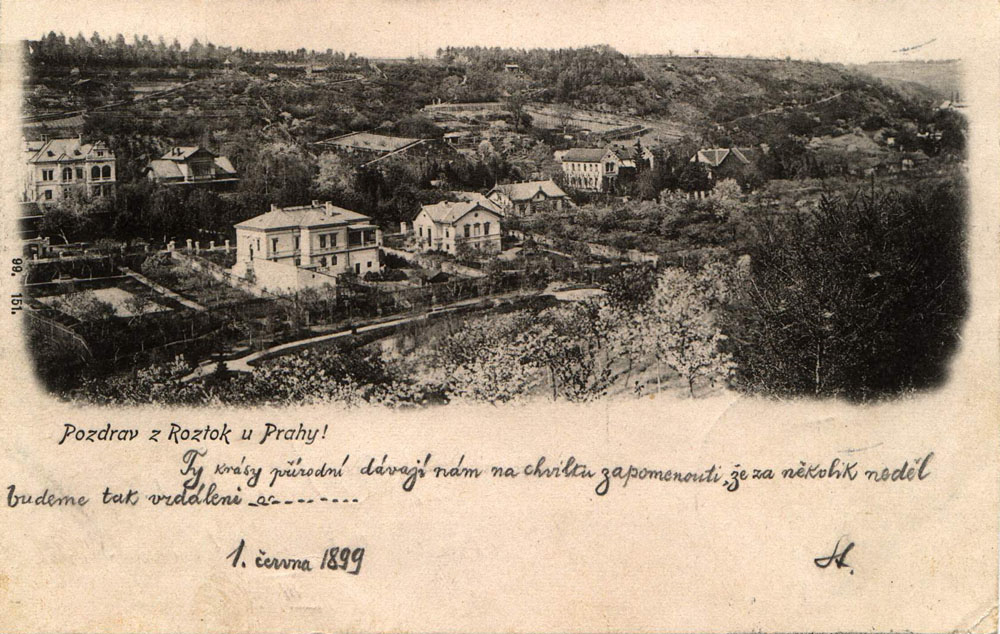 99, 151.
Pozdrav z Roztok u Prahy!
Ty krásy přírodní dávají nám na chvilku zapomenouti, že za několik neděl
budeme tak vzdáleni
1. června 1899